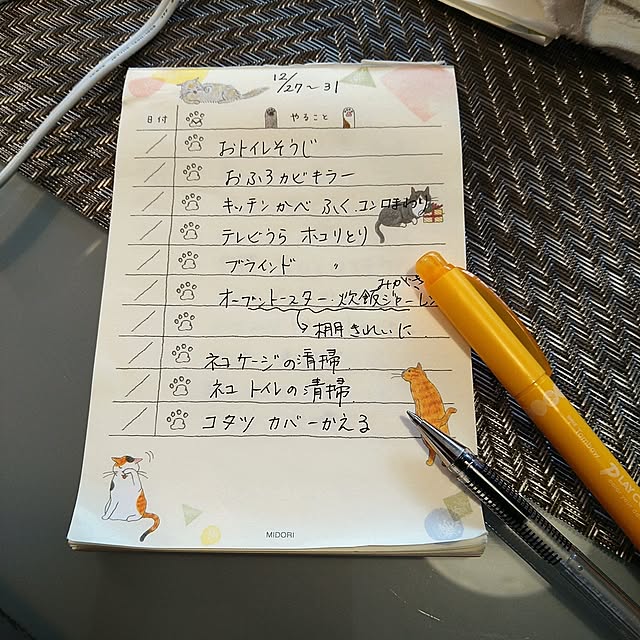 12/27〜31
日付 やること
おトイレそうじ
おふろカビキラー
キッチンかべ ふく.コンロまわり
テレビうら ホコリとり
ブラインド 〃
みがき
オーブントースター・炊飯ジャー・レン
棚きれいに
ネコケージの清掃
ネコトイレの清掃
コタツ カバーかえる
MIDORI
PLAY